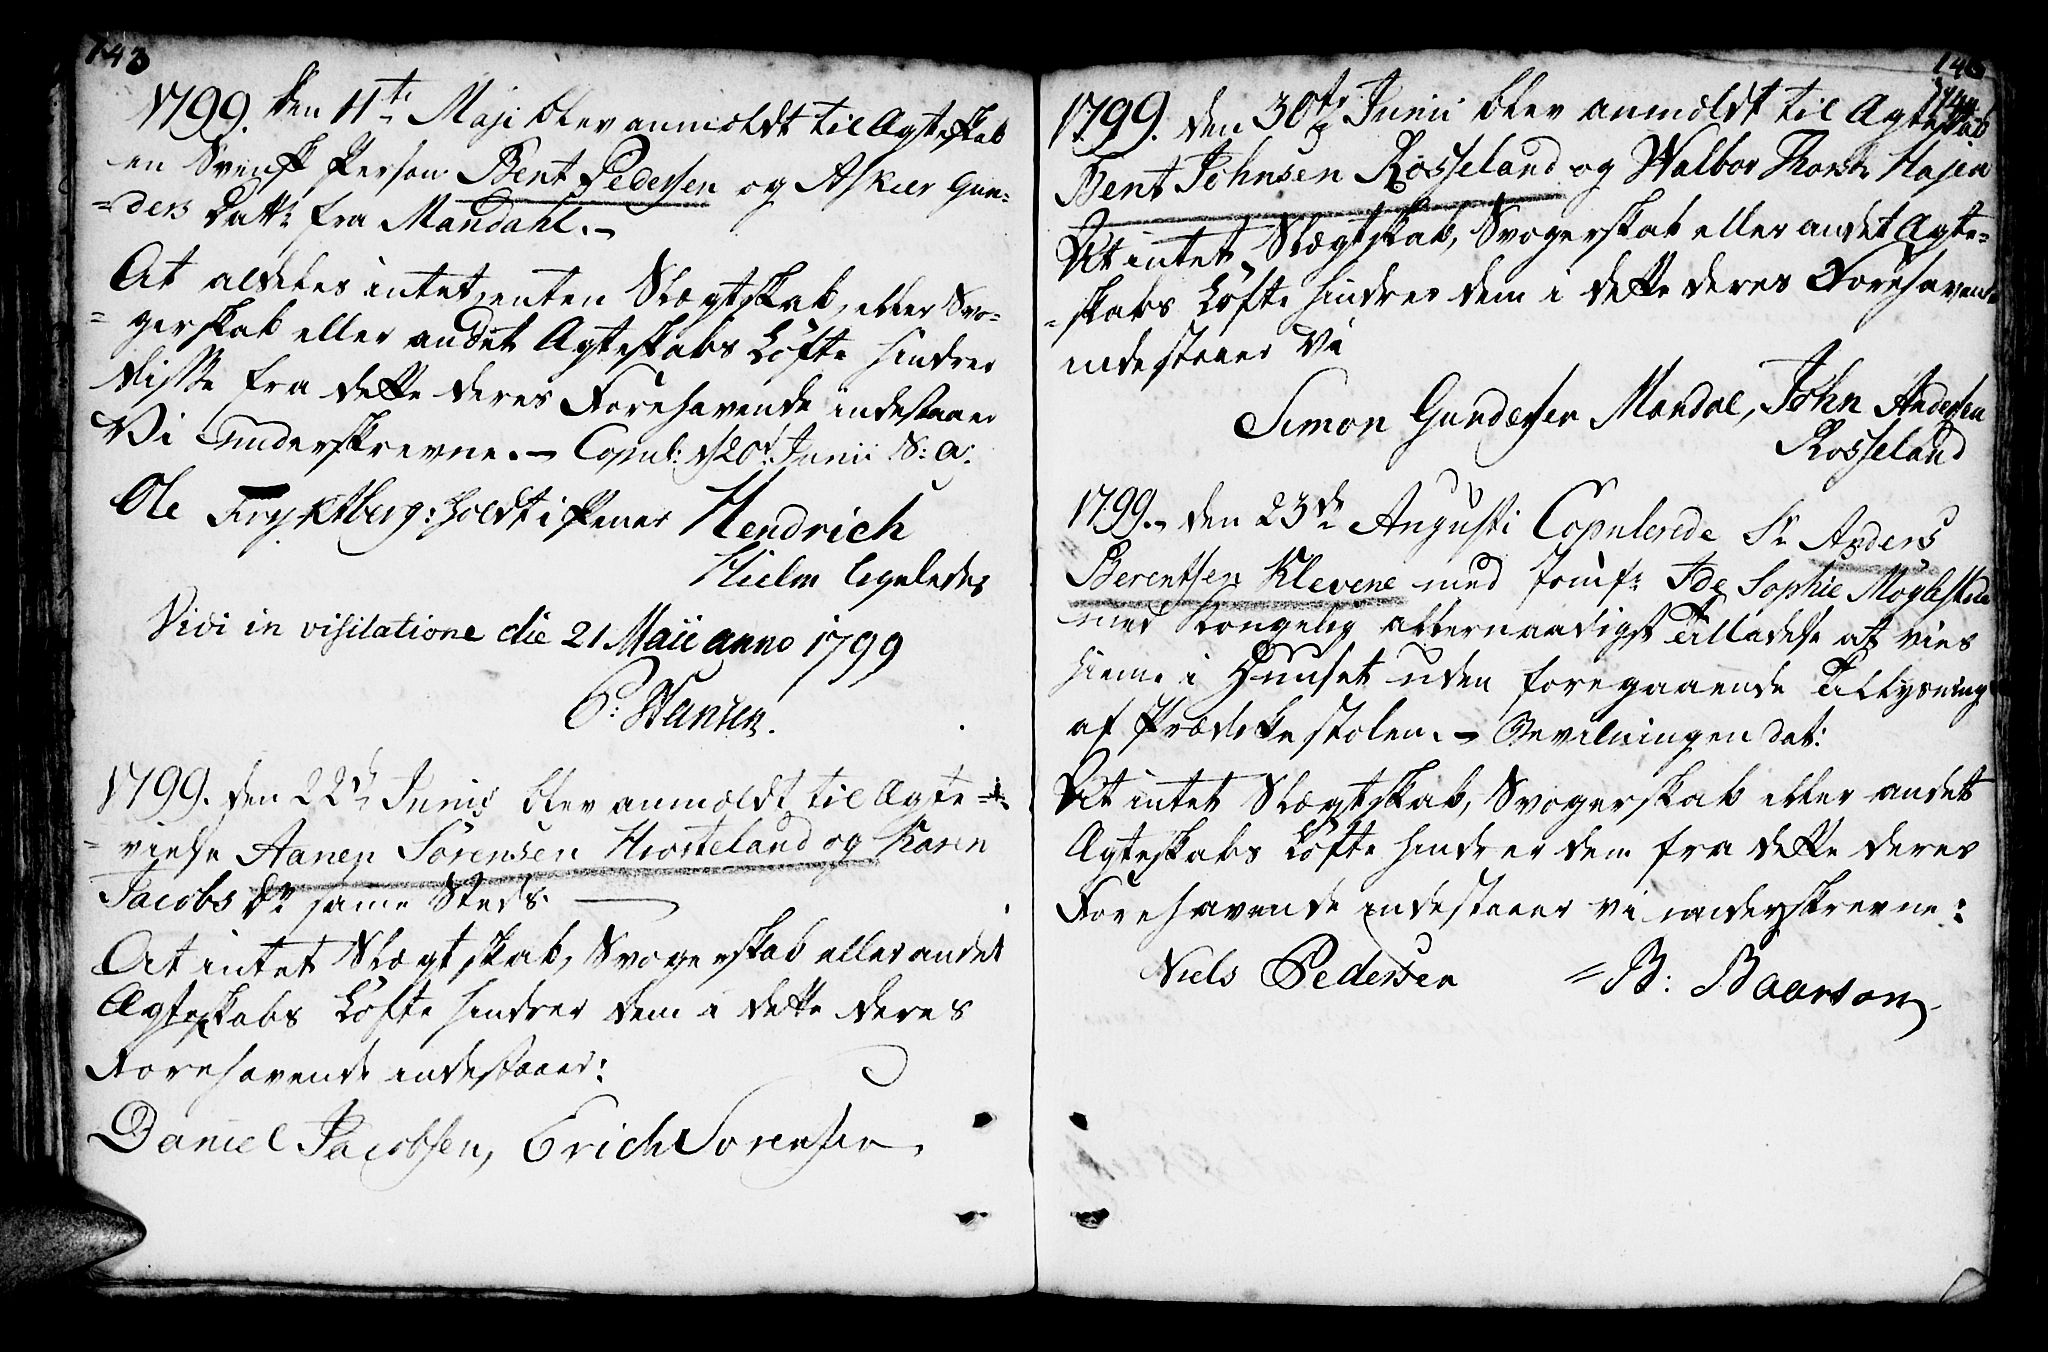 143
1799. Den 11te Maji blev anmeldt til Ægteskab
en Svensk Person Bent Pedersen og Askier Gun-
=ders Dattr fra Mandahl.-
At aldeles intet, enten Slægtskab, eller Svo-
=gerskab eller andet Ægteskabs Løfte hindrer
disse fra dette deres Forehavende indestaaer
Vi underskrevne.- Copul: d 20de Junii S: A:
Ole Frycktberg: holdt i Pener Hendrich
Hielm ligeledes
Vidi in visitatione die 21 Maii anno 1799
P: Hansen.
1799. Den 22de Junii blev anmeldt til Ægte=
=vielse Aanen Sørensen Hwosteland og Karen
Jacobs Dr samme Steds.
At intet Slægtskab, Svogerskab eller andet
Ægteskabs Løfte hindrer dem i dette deres
Forehavende indestaaer:
Daniel Jacobsen, Erich Sorensen.
144
1799. Den 30te Junii blev anmeldt til Ægteskab
Bent Johnsen Rosseland og Walbor Thorsdr Hajen
At intet Slægtskab, Svogerskab eller andet Ægte=
=skabs Løfte hindrer dem i dette deres Forehavende
indestaaer Vi
Simon Gundersen Mandal, John Andersen
Rosseland
1799.- den 23de Augusti Copulerede Sr Anders
Berentsen Klevene med Jomfr: Ide Sophie Møglestue
med Kongelig allernaadigst Tilladelse at vies
hiemme i Huuset uden foregaaende Tillysning
af Prædikestolen.- Bevilningen dat:
At intet Slægtskab, Svogerskab eller andet
Ægteskabs Løfte hindrer dem fra dette deres
Forehavende indestaaer vi underskrevne:
Niels Pedersen =B: Baarson